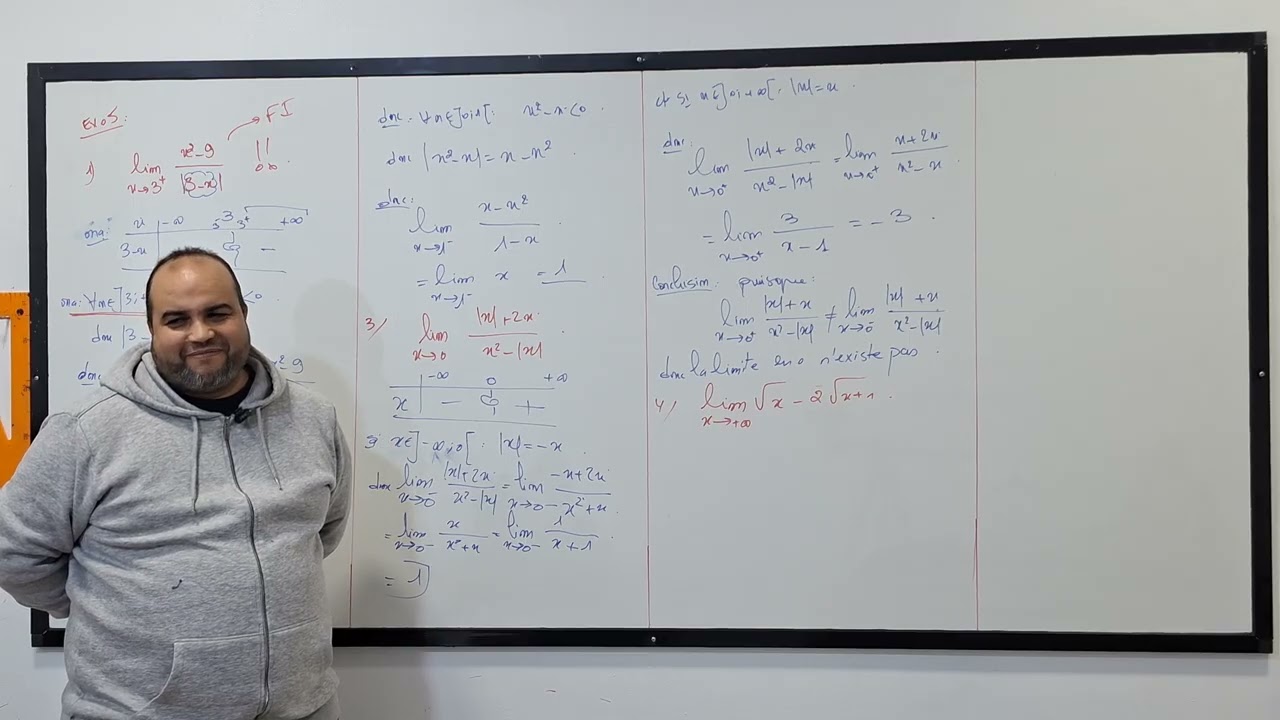 Exo5:
1) lim x→3⁺ (x²-9)/|3-x| → FI !!
ona: x | -∞ 3 3⁺ +∞
3-x | 0 -
ona: ∀x∈]3;
donc |3-
donc
x²-9
donc: ∀x∈]0;1[: x²-x<0.
donc |x²-x| = x-x²
donc: lim x→1⁻ (x-x²)/(1-x).
= lim x→1⁻ x = 1
3/ lim x→0 (|x|+2x)/(x²-|x|).
-∞ 0 +∞
x | - 0 +
si x∈]-∞;0[: |x|=-x.
donc lim x→0⁻ (|x|+2x)/(x²-|x|) = lim x→0⁻ (-x+2x)/(x²+x).
= lim x→0⁻ x/(x²+x) = lim x→0⁻ 1/(x+1).
= 1
et si x∈]0;+∞[: |x|=x.
donc: lim x→0⁺ (|x|+2x)/(x²-|x|) = lim x→0⁺ (x+2x)/(x²-x).
= lim x→0⁺ 3/(x-1) = -3.
Conclusion: puisque:
lim x→0⁺ (|x|+x)/(x²-|x|) ≠ lim x→0⁻ (|x|+x)/(x²-|x|)
donc la limite en 0 n'existe pas.
4/ lim x→+∞ √x - 2√x+1.